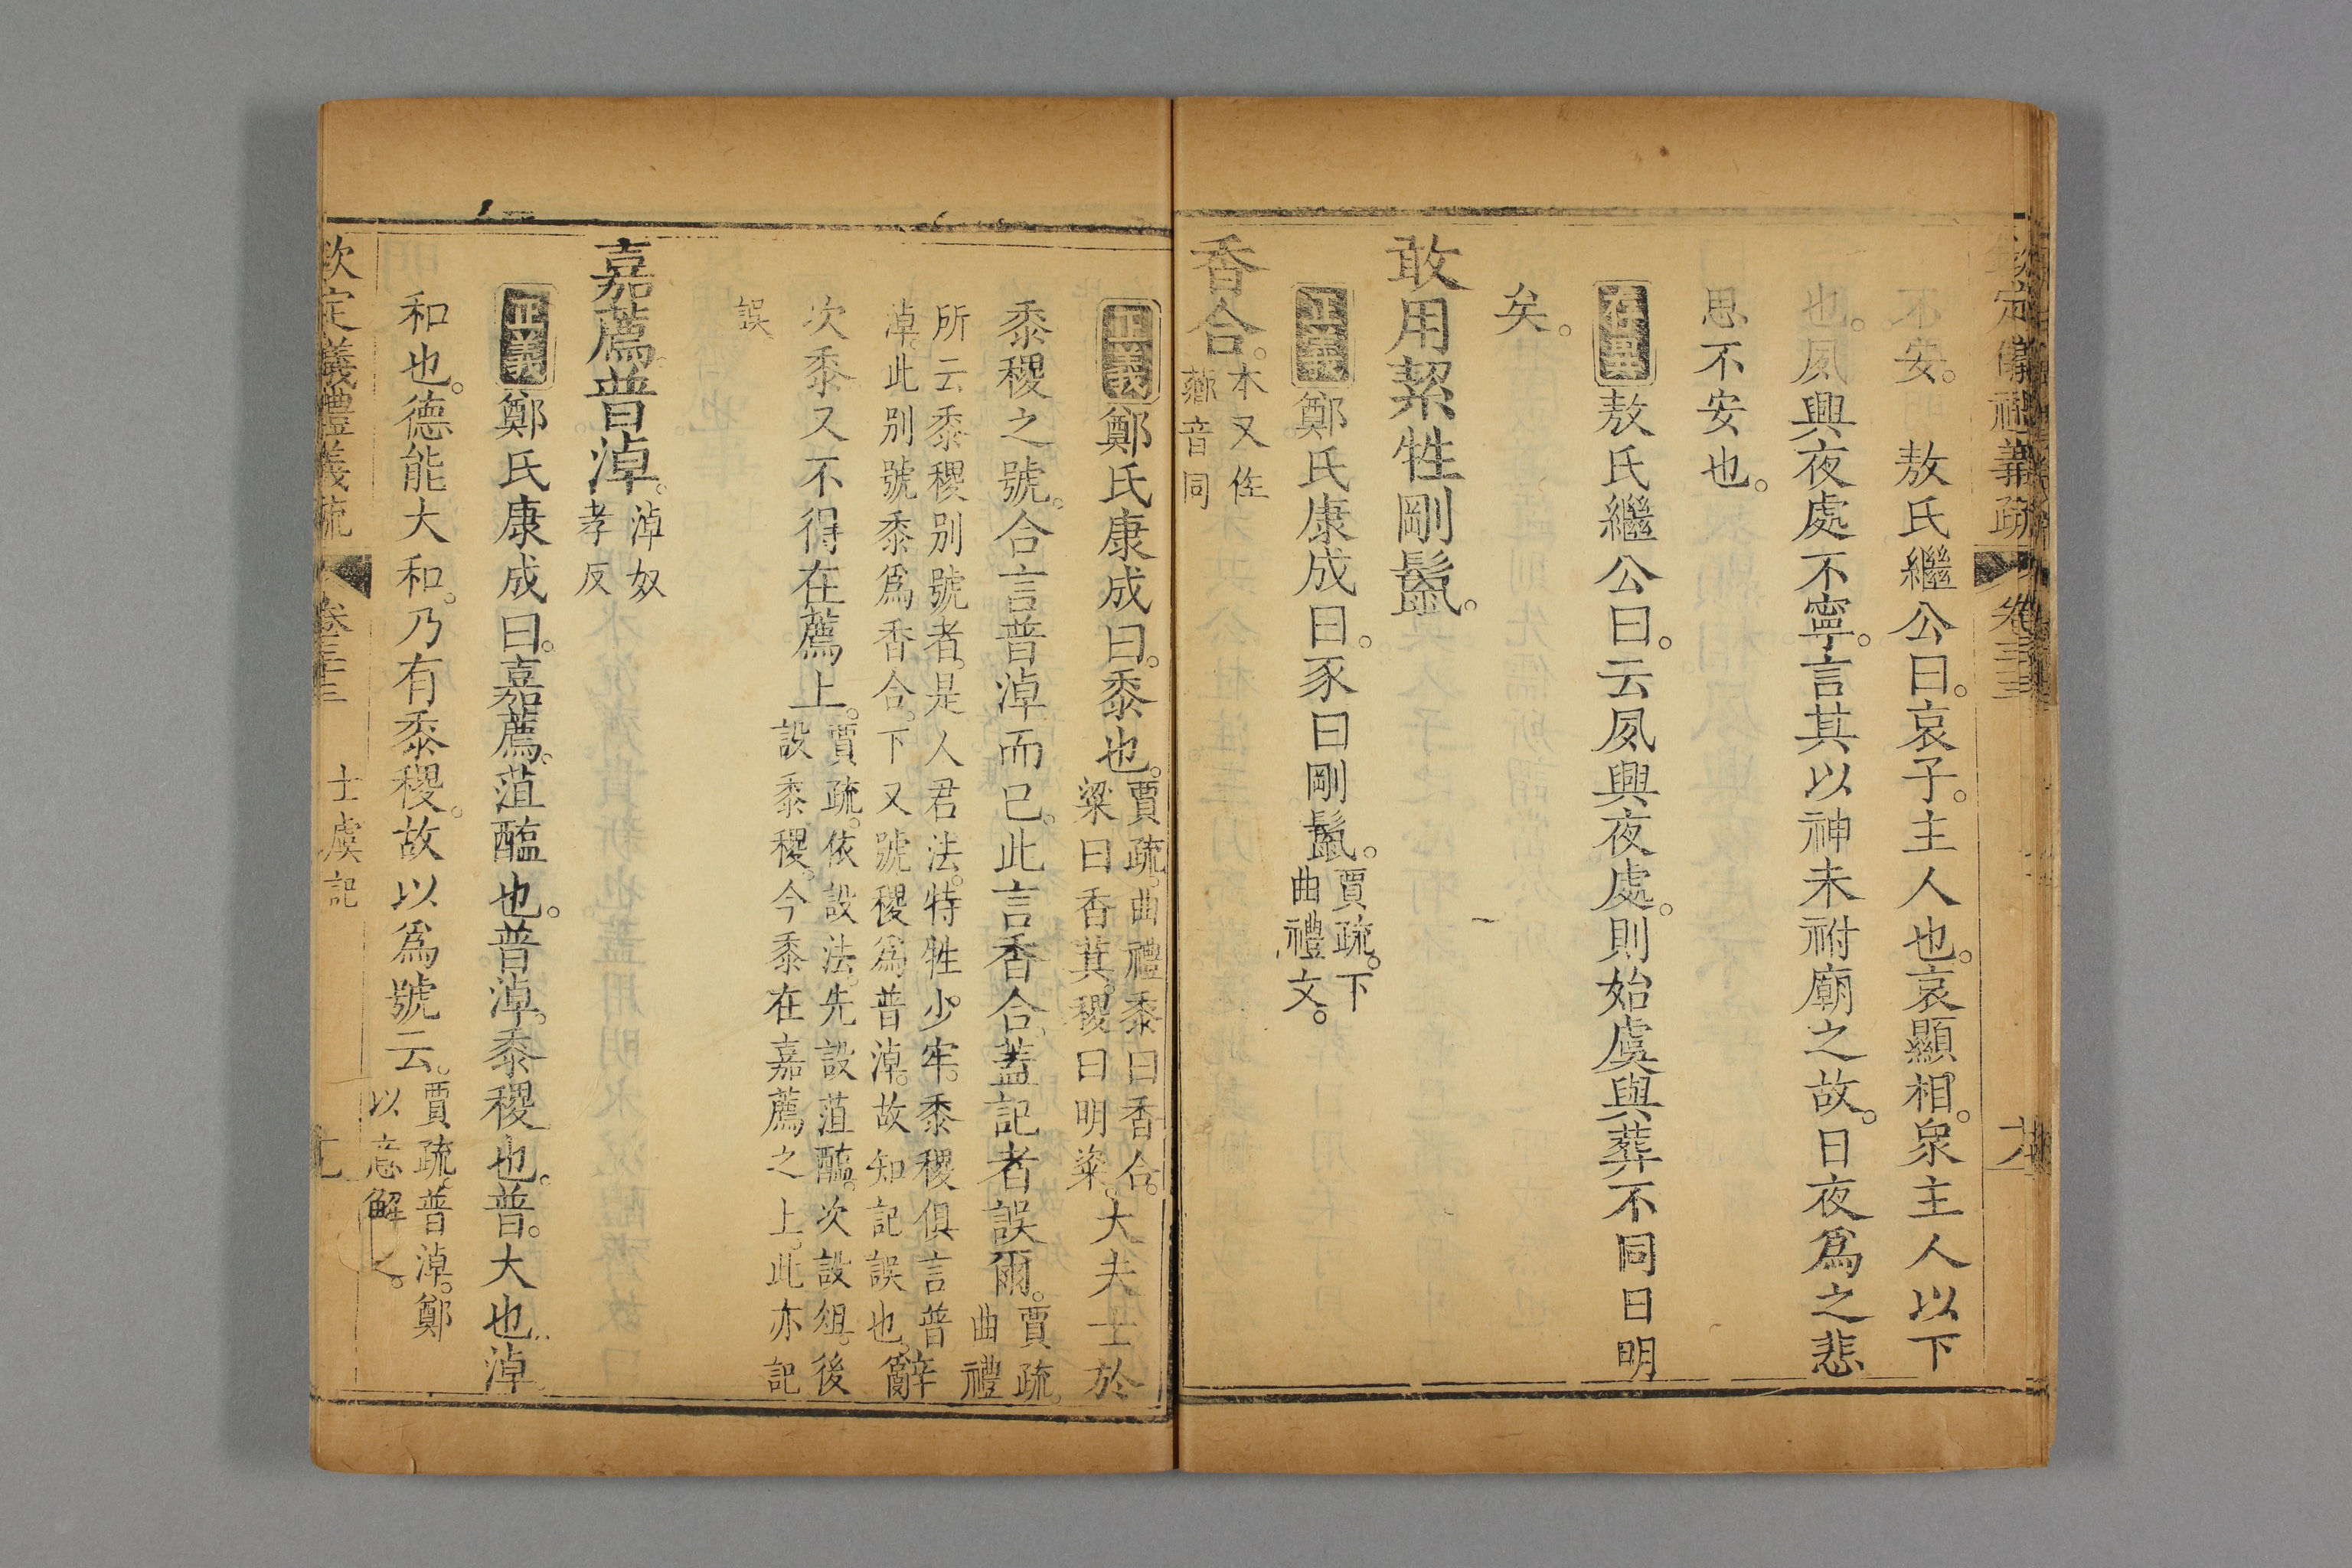 欽定儀禮義疏 卷三十三
不安。敖氏繼公曰。哀子。主人也。哀顯相。衆主人以下
也。夙興夜處不寧。言其以神未祔廟之故。日夜爲之悲
思不安也。
存異 敖氏繼公曰。云夙興夜處。則始虞與葬不同日明
矣。
敢用絜牲剛鬣。
正義 鄭氏康成曰。豕曰剛鬣。賈疏。下
曲禮文。
香合。本又作
薌音同
正義 鄭氏康成曰。黍也。賈疏。曲禮黍曰香合。
粱曰香萁。稷曰明粢。大夫士於
黍稷之號。合言普淖而已。此言香合。蓋記者誤爾。賈疏。
曲禮
所云黍稷別號者。是人君法。特牲少牢。黍稷俱言普
淖。此別號黍爲香合。下又號稷爲普淖。故知記誤也。辭
次黍又不得在薦上。賈疏。依設法。先設菹醢。次設俎。後
設黍稷。今黍在嘉薦之上。此亦記
誤
嘉薦普淖。淖奴
孝反
正義 鄭氏康成曰。嘉薦。菹醢也。普淖。黍稷也。普。大也。淖
和也。德能大和。乃有黍稷。故以爲號云。賈疏。普淖。鄭
以意解之。
欽定儀禮義疏 卷三十三 士虞記